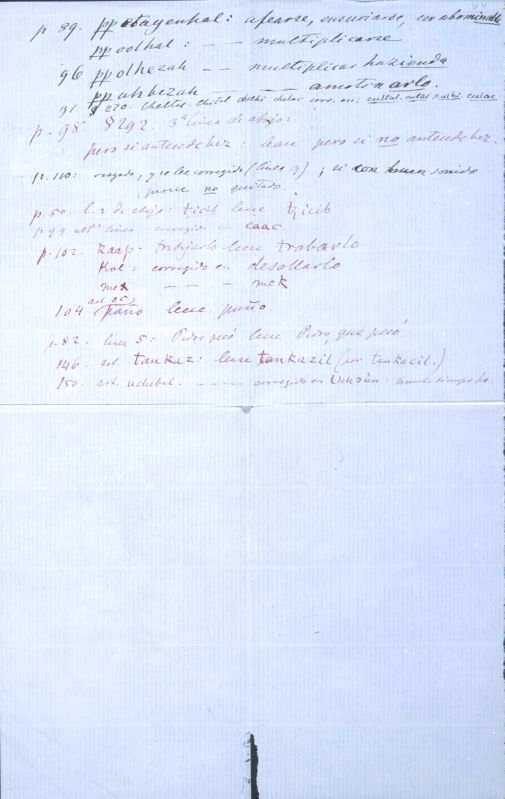 p. 89. ppotayenhal: afearse, ensuciarse, ser abominable
ppoolhal: - - multiplicarse
96 ppolhezah - - multiplicar hazienda
ppuhbezah - - - amotinarlo.
91. § 270. chettal. chitil chelhi chelac corr. en: cultal. cutal. culhi culac
p. 98. § 292. 3ª linea de abajo:
pero si antecede bez: lease pero si no antecede bez.
p. 110: rasgado, y se lee corregido (linea 9); si con sonido
no quitado.
p. 50. l. 2 de abajo: ticib lease tzicib
p. 99 linea corregido en caac
p. 102. Kaap. lease trabarlo
Kol: corregido en desollarlo
mex - - - mek
104 art. paño lease puño.
p. 82. linea 5: Pedro pecó lease Pedro, que pecó
146. art. tankaz: lease tankazil (por tankacil.)
150. art. uchebal. - - - - corregido en Uchùn: